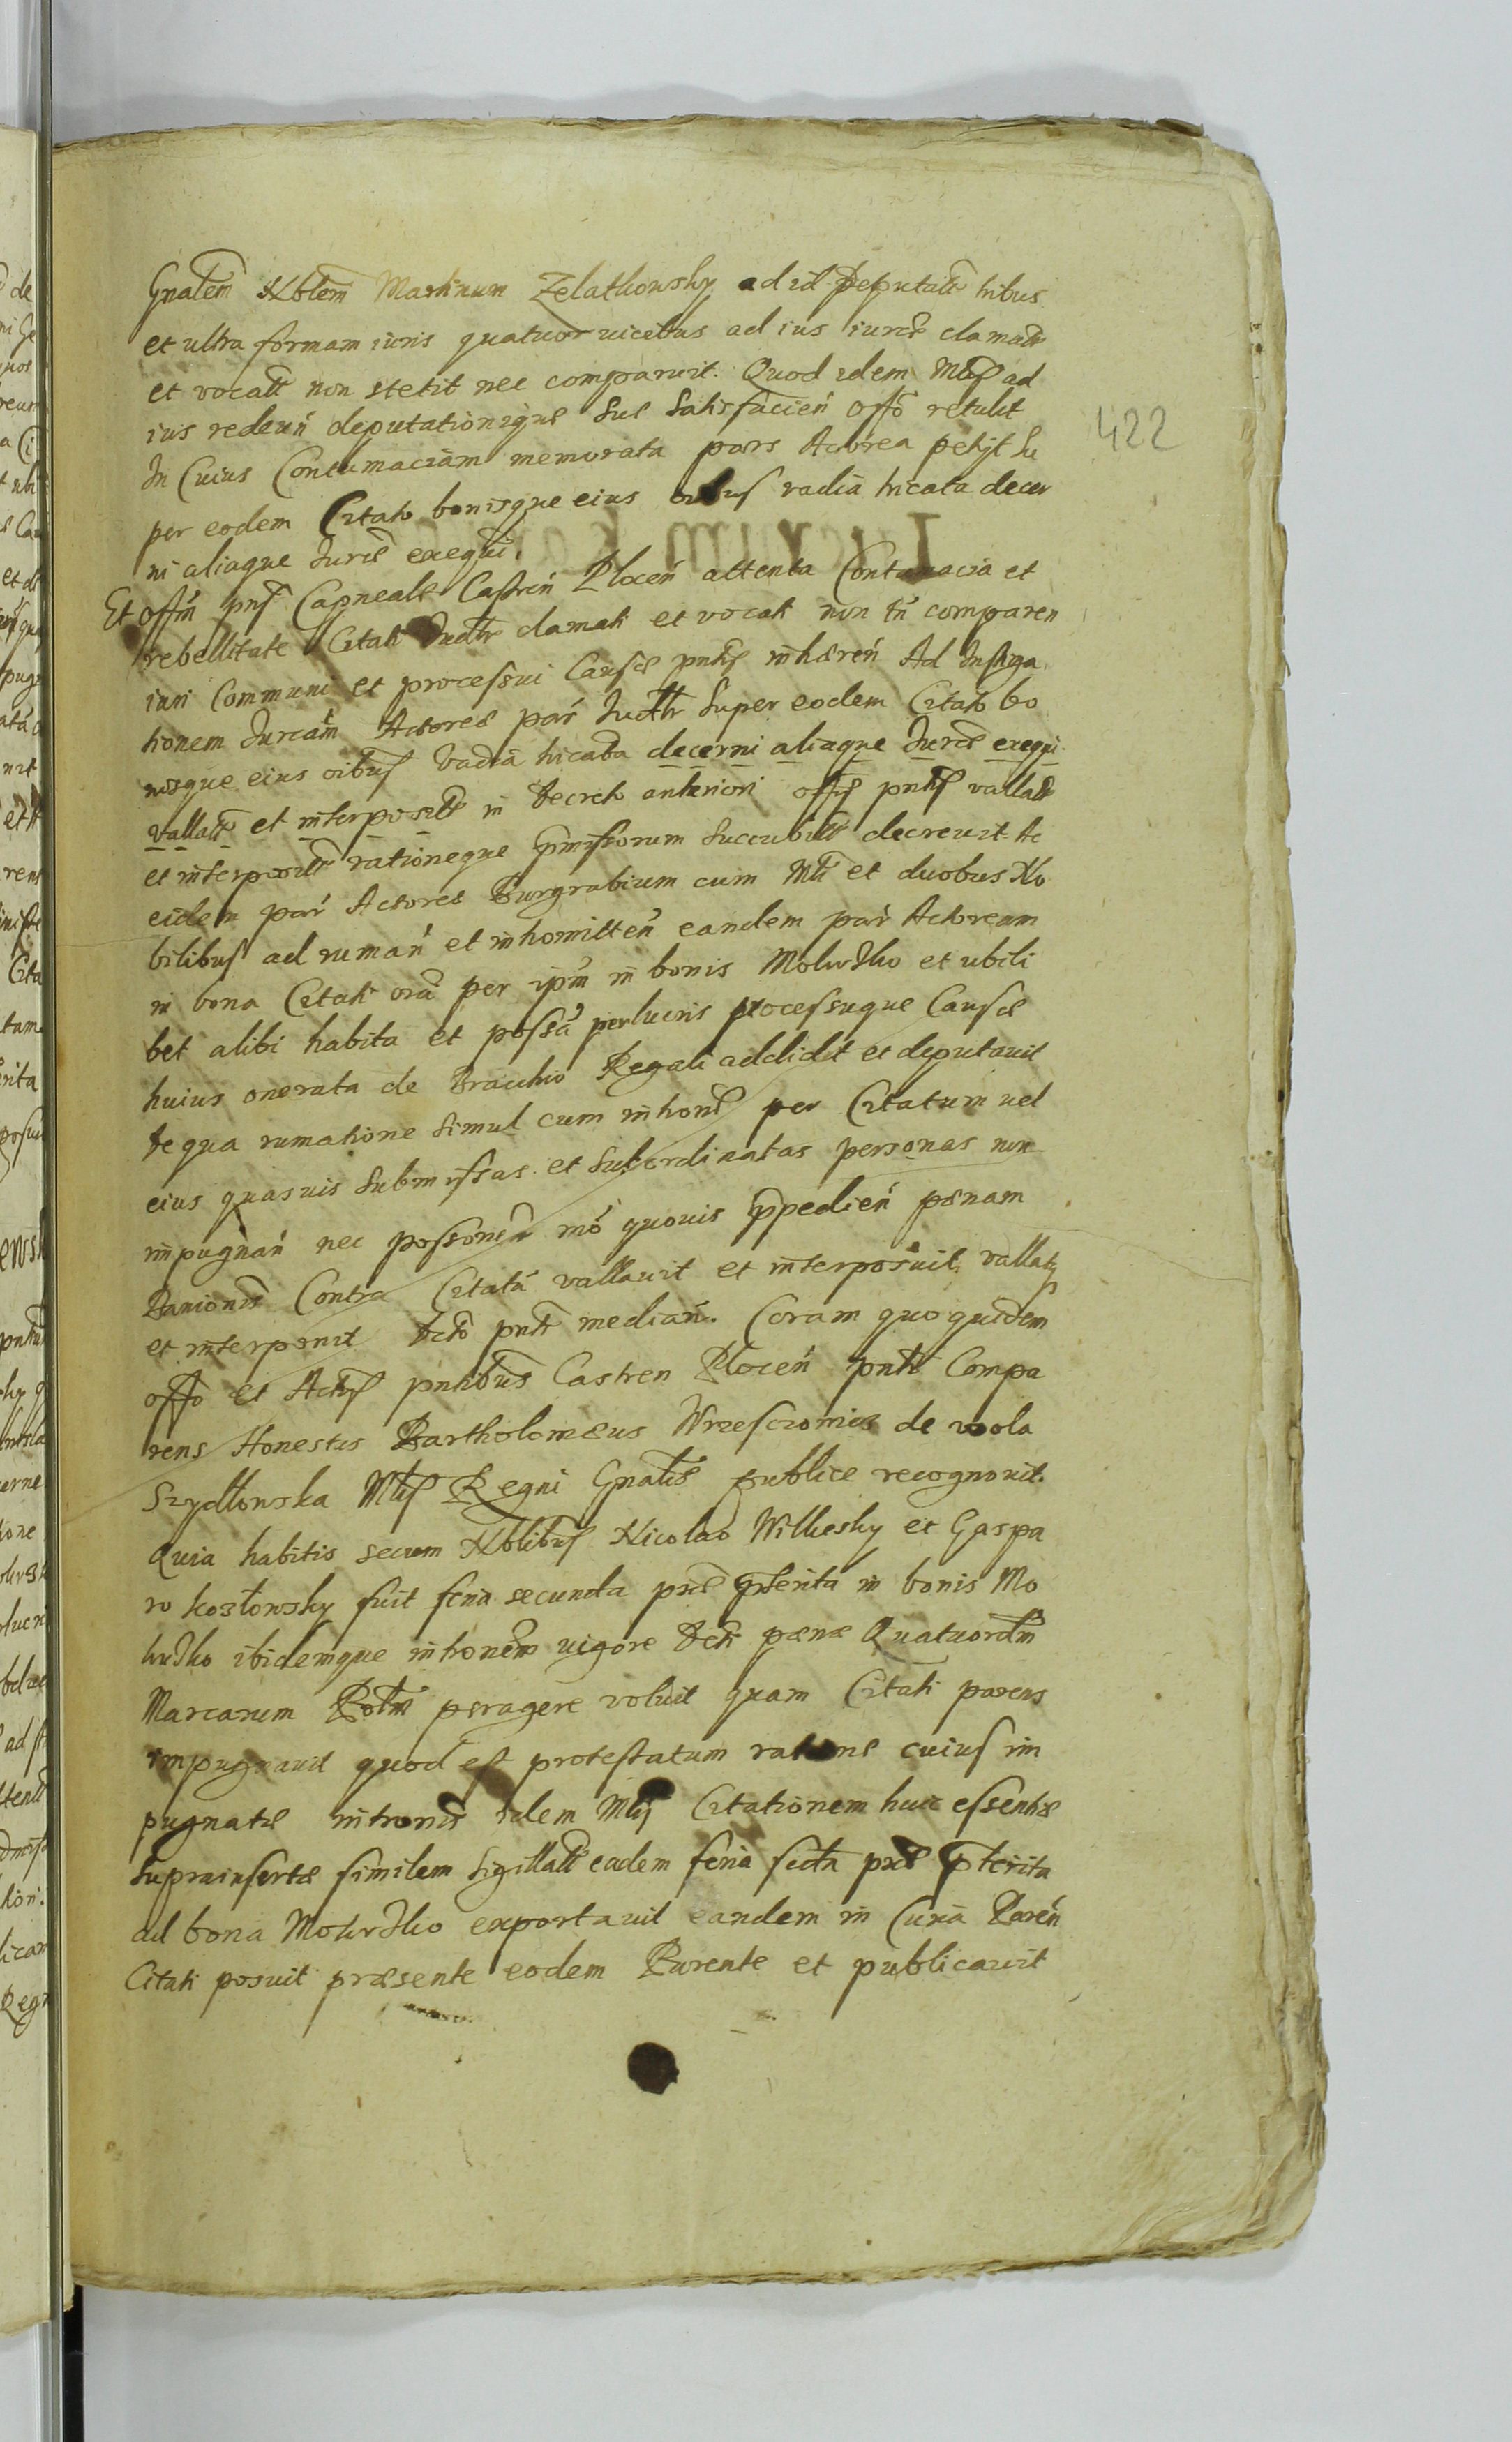 Gnalem Nblem Martinum Zelatkowsky ad id deputatu tribus
et ultra formam iuris quatuor vicebus ad ius iurdce clamatu
et vocatu non stetit nec comparuit. Quod idem Mtlis ad
ius redeun deputationique sue satisfacien offo retulit
In Cuius Contumaciam memorata pars Actorea petijt su
per eodem Citato bonisque eius oibus vadia tricata decer
ni aliaque Iurce exequi.
Et offm pns Capneale Castren Plocen attenta Contumacia et
rebellitate Citati Iudtr clamati et vocati non tn comparen
iuri Communi et processui Causae pntis inhaeren Ad Instiga
tionem Iurcam Actoree par Iudtr super eodem Citato bo
nisque eius oibus vadia tricata decerni aliaque Iurce exequi
vallatu et interpositu in decreto anteriori offij pntis vallatu
et interpositu rationeque pmissorum succubitu decrevit Ac
eidem par Actoree Burgrabium cum Mtli et duobus No
bilibus ad ruman et intromitten eandem par Actoream
in bona Citati oia per ipm in bonis Molwsko et ubili
bet alibi habita et possa per lucris processuque Causae
huius onerata de Bracchio Regali addidit et deputavit
de qua rumatione simul cum intrones per Citatum vel
eius quasvis submissas et subordinatas personas non
impugnan nec possonem mo quovis ppedien paenam
Banionis Contra Citatu vallavit et interposuit, vallatq
et interponit dcto pnti median. Coram quo quidem
offo et Actis pntibus Castren Plocen pntr Compa
rens Honestus Bartholomaeus Wrzesczonie de woola
Szydlowska Mtlis Regni Gnalis publice recognovit.
Quia habitis secum Nblibus Nicolao Wilkesky et Gaspa
ro kozlowsky fuit feria secunda pxie pterita in bonis Mo
lwsko ibidemque intronem vigore dcti paenae Quatuordm
Marcarum Polm peragere voluit quam Citati parens
impugnavit quod est protestatum ratione cuius im
pugnatae intronis idem Mtlij Citationem huic essentiae
suprainsertae similem sigillatu eadem feria scda pxie pterita
ad bona Molwsko exportavit eandem in Curia Paren
Citati posuit praesente eodem Parente et publicavit
422